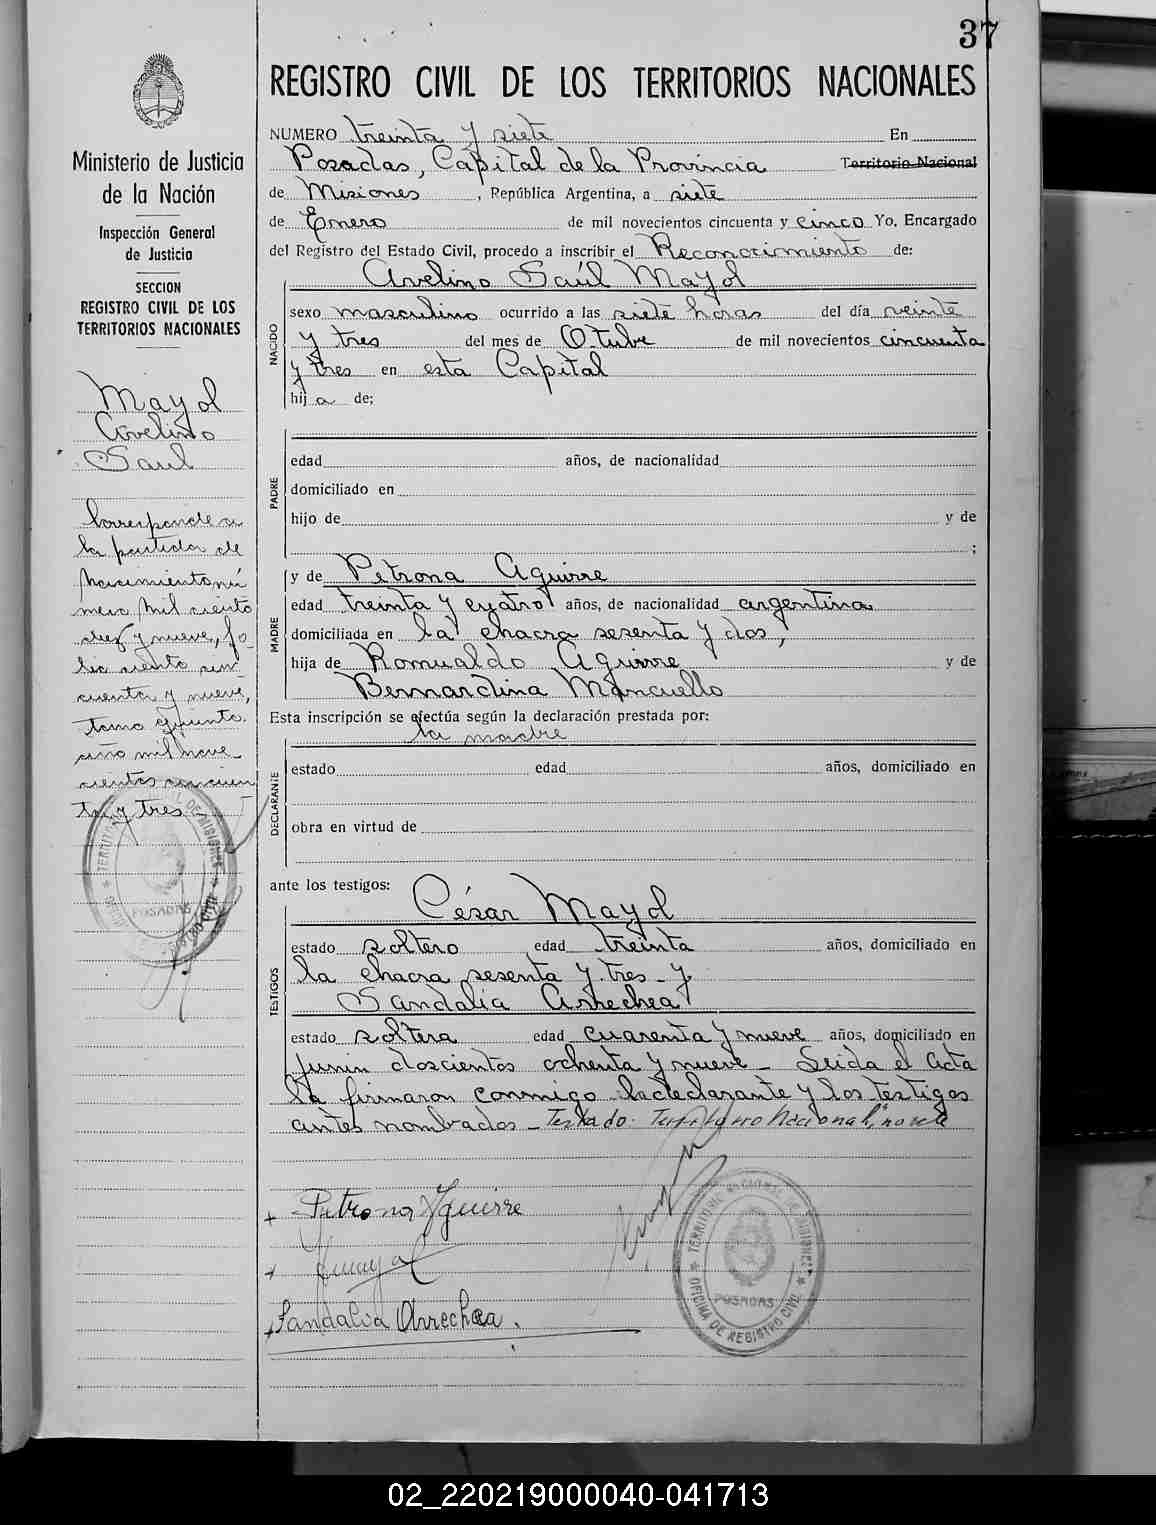 37
REGISTRO CIVIL DE LOS TERRITORIOS NACIONALES
Ministerio de Justicia
de la Nación
Inspección General
de Justicia
SECCION
REGISTRO CIVIL DE LOS
TERRITORIOS NACIONALES
Mayol
Avelino
Saul
Corresponde a
la partida de
Nacimiento nú
mero, mil ciento
diez y nueve, fo
lio ciento cin
cuenta y nueve,
tomo quinto.
año mil nove
cientos cincuen
ta y tres
NUMERO treinta y siete En
Posadas, Capital de la Provincia Territorio Nacional
de Misiones, República Argentina, a siete
de Enero de mil novecientos cincuenta y cinco Yo, Encargado
del Registro del Estado Civil, procedo a inscribir el Reconocimiento de:
Avelino Saúl Mayol
NACIDO
sexo masculino ocurrido a las siete horas del día veinte
y tres del mes de Otubre de mil novecientos cincuenta
y tres en esta Capital
hij a de;
PADRE
edad años, de nacionalidad
domiciliado en
hijo de y de
;
MADRE
y de Petrona Aguirre
edad treinta y cuatro años, de nacionalidad argentina
domiciliada en la chacra sesenta y dos,
hija de Romualdo Aguirre y de
Bernardina Mancuello
Esta inscripción se efectúa según la declaración prestada por:
la madre
DECLARANTE
estado edad años, domiciliado en
obra en virtud de
ante los testigos:
César Mayol
TESTIGOS
estado soltero edad treinta años, domiciliado en
la chacra sesenta y tres y
Sandalia Arrechea
estado soltera edad cuarenta y nueve años, domiciliado en
Junin doscientos ochenta y nueve - Leida el acta
la firmaron conmigo la declarante y los testigos
antes nombrados - Testado: "Territorio Nacional", no vale
+ Petrona Aguirre
+
+ Sandalia Arrechea.
TERRITORIO NACIONAL DE MISIONES
POSADAS
OFICINA DE REGISTRO CIVIL
02_220219000040-041713